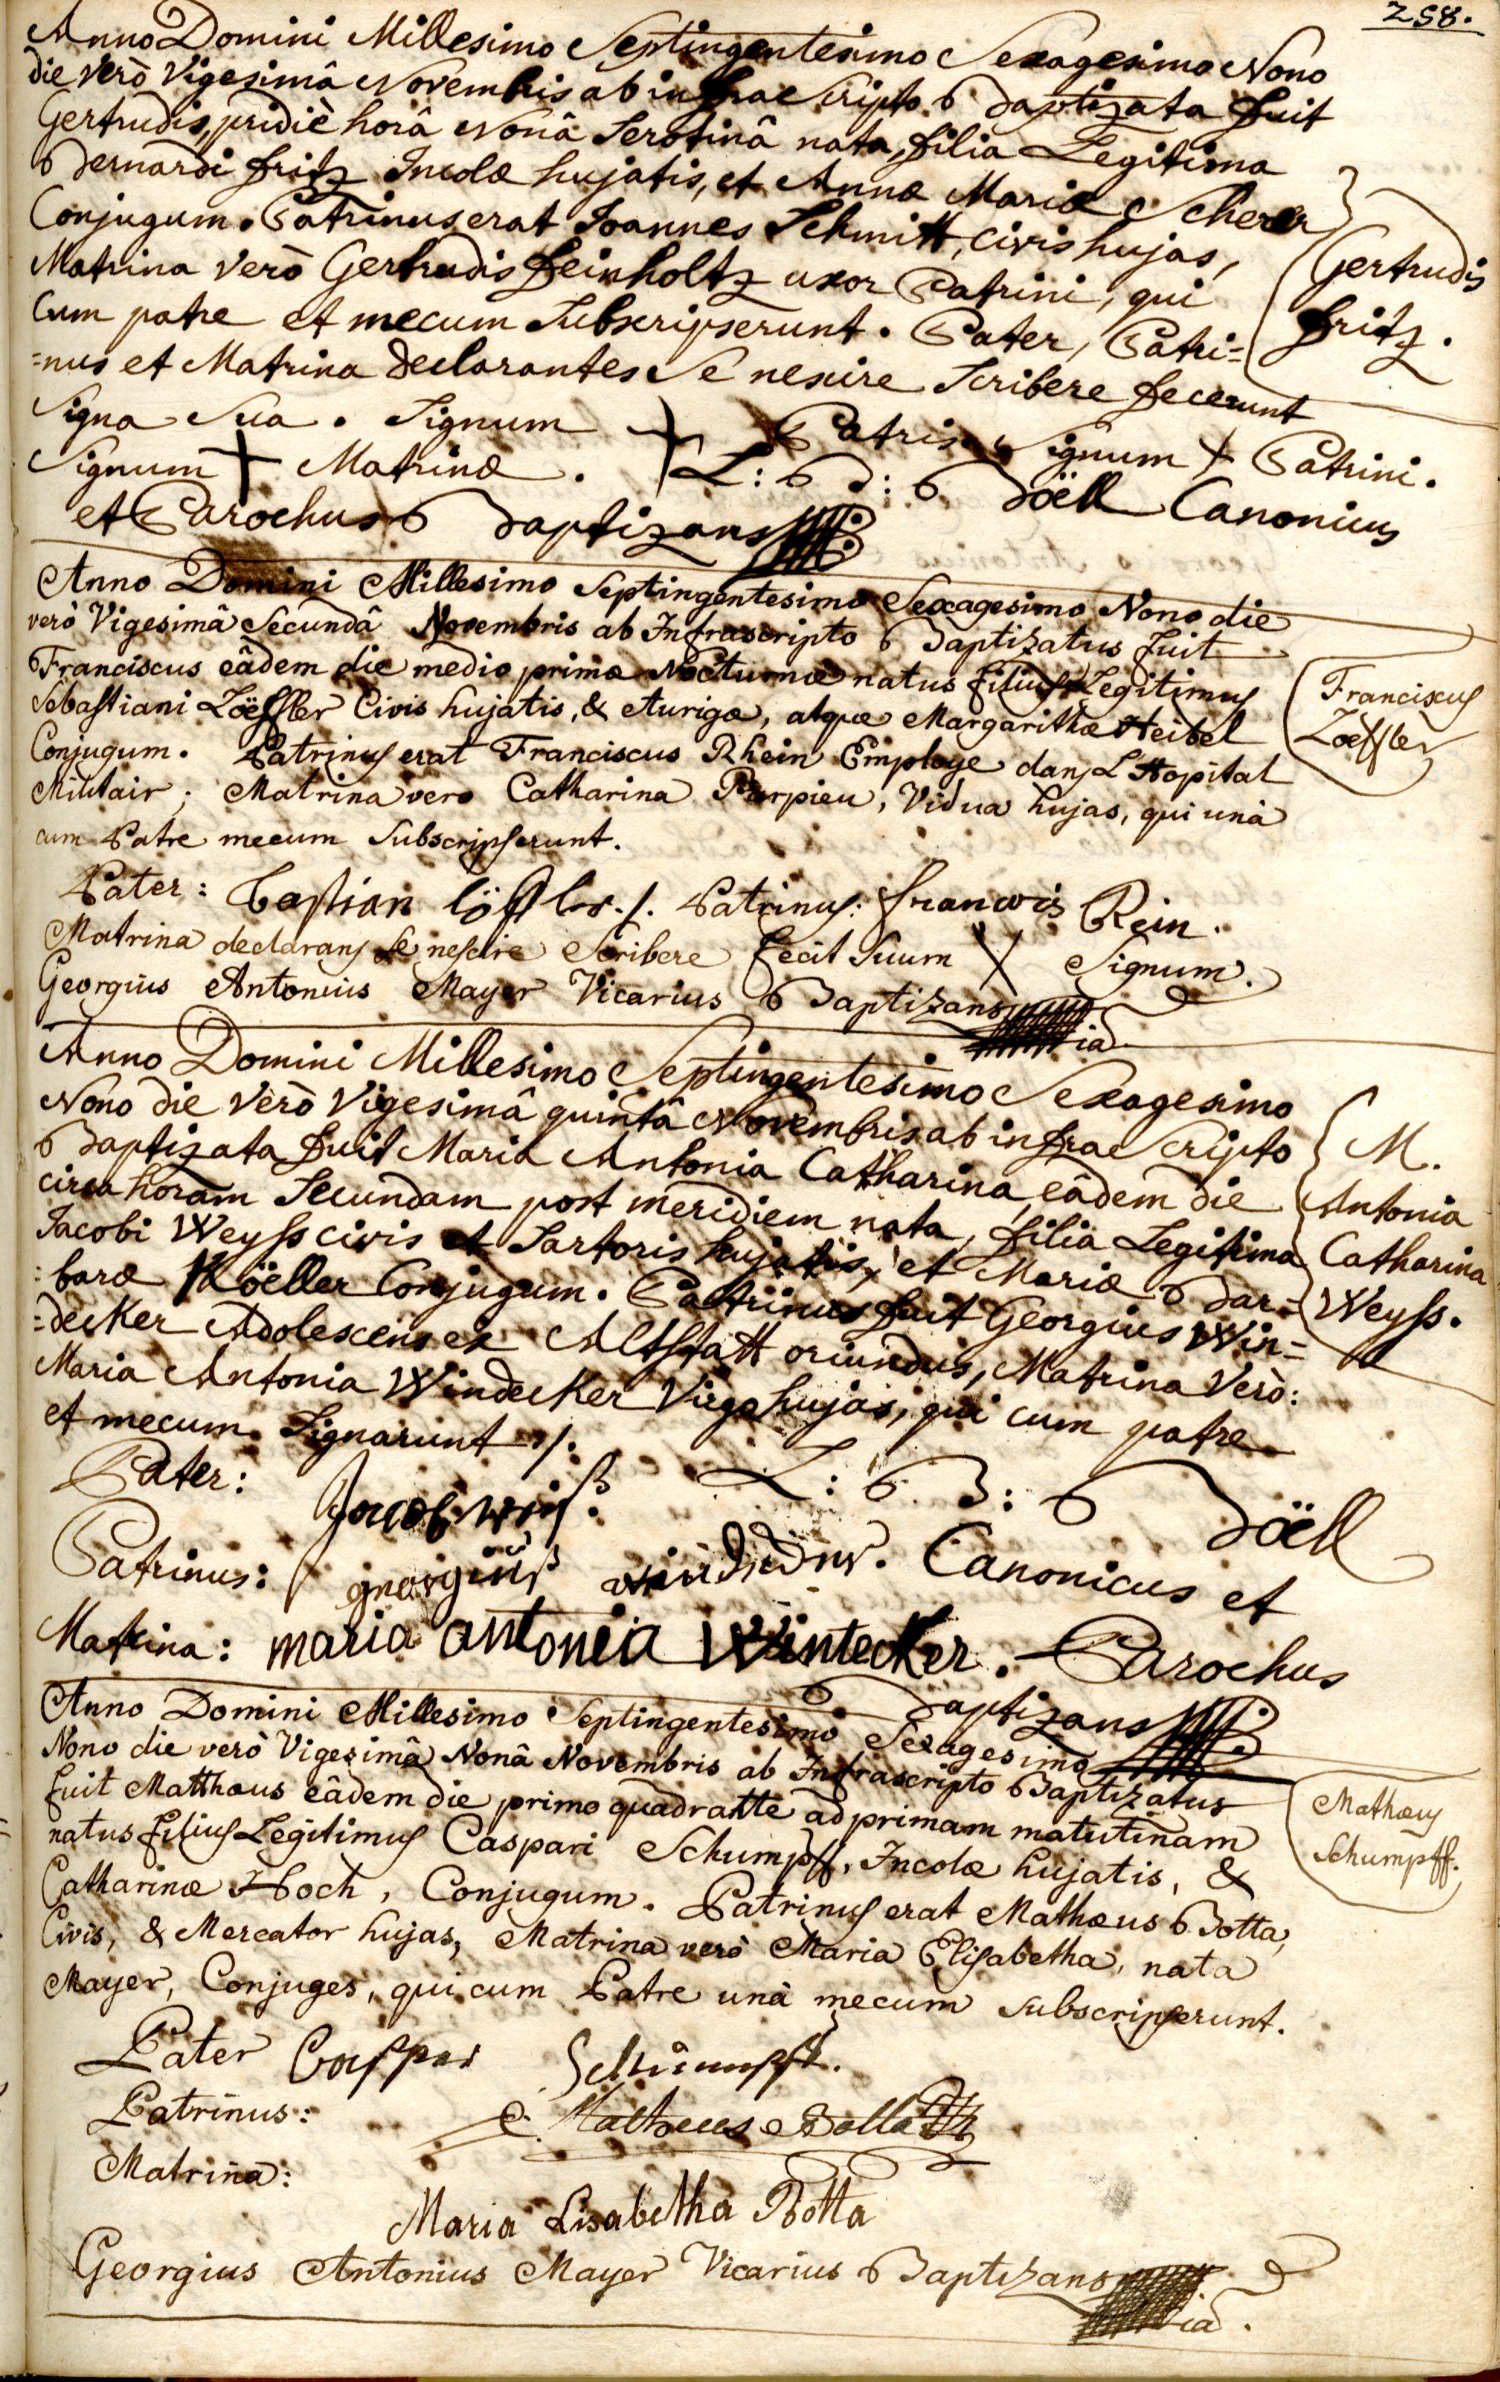 258.
Anno Domini Millesimo Septingentesimo Sexagesimo Nono
die verò Vigesimâ Novembris ab infra Scripto Baptizata fuit
Gertrudis, pridiè horâ Nonâ Serotinâ nata, filia Legitima
Bernardi fritz Incolæ hujatis, et Annæ Mariæ Scherer
Conjugum. Patrinus erat Joannes Schmitt, civis hujas,
Matrina verò Gertrudis feinholtz uxor Patrini, qui
Cum patre et mecum Subscripserunt. Pater, Patri=
=nus et Matrina declarantes Se nescire Scribere fecerunt
Signa Sua. Signum + Patris. Signum + Patrini.
Signum + Matrinæ. L: B: Doëll Canonicus
et Parochus Baptizans
Gertrudis
fritz.
Anno Domini Millesimo Septingentesimo Sexagesimo Nono die
verò Vigesimâ Secundâ Novembris ab Infrascripto Baptizatus fuit
Franciscus eâdem die medio primæ Nocturnæ natus filius Legitimus
Sebastiani Zöeffler Civis hujatis, & Aurigæ, atque Margarithæ Heibel
Conjugum. Patrinus erat Franciscus Rhein Employe dans L Hopital
Militair; Matrina vero Catharina Parpieu, Vidua hujas, qui unà
cum Patre mecum Subscripserunt.
Franciscus
Zöeffler
Pater: Bastian löffler ./. Patrinus: francois Rein.
Matrina declarans Se nescire Scribere fecit Suum X Signum.
Georgius Antonius Mayer Vicarius Baptizans
Anno Domini Millesimo Septingentesimo Sexagesimo
Nono die verò Vigesimâ quintâ Novembris ab infra Scripto
Baptizata fuit Maria Antonia Catharina, eâdem die
circa horam Secundam post meridiem nata, filia Legitima
Jacobi Weyss civis et Sartoris hujatis, et Mariæ Bar=
=baræ Köeller Conjugum. Patrinus fuit Georgius Win=
=decker Adolescens ex Altstatt oriundus, Matrina Verò:
Maria Antonia Windecker Virgo hujas, qui cum patre
et mecum Signarunt ./.
M.
Antonia
Catharina
Weyss.
Pater: Jacob weiß. L: B: Doëll
Patrinus: georgiuß windecker. Canonicus et
Matrina: maria antonia Wintecker. Parochus
Baptizans
Anno Domini Millesimo Septingentesimo Sexagesimo
Nono die verò Vigesimâ Nonâ Novembris ab Infrascripto Baptizatus
fuit Matthæus eâdem die primo quadratte ad primam matutinam
natus filius Legitimus Caspari Schumpff, Incolæ hujatis, &
Catharinæ Hoch, Conjugum. Patrinus erat Mathæus Botta,
Civis, & Mercator hujas, Matrina verò Maria Elisabetha, nata
Mayer, Conjuges, qui cum Patre unà mecum subscripserunt.
Mathæus
Schumpff.
Pater Casspar Schumpff.
Patrinus: Matheus Botta
Matrina:
Maria Lisabetha Botta
Georgius Antonius Mayer Vicarius Baptizans